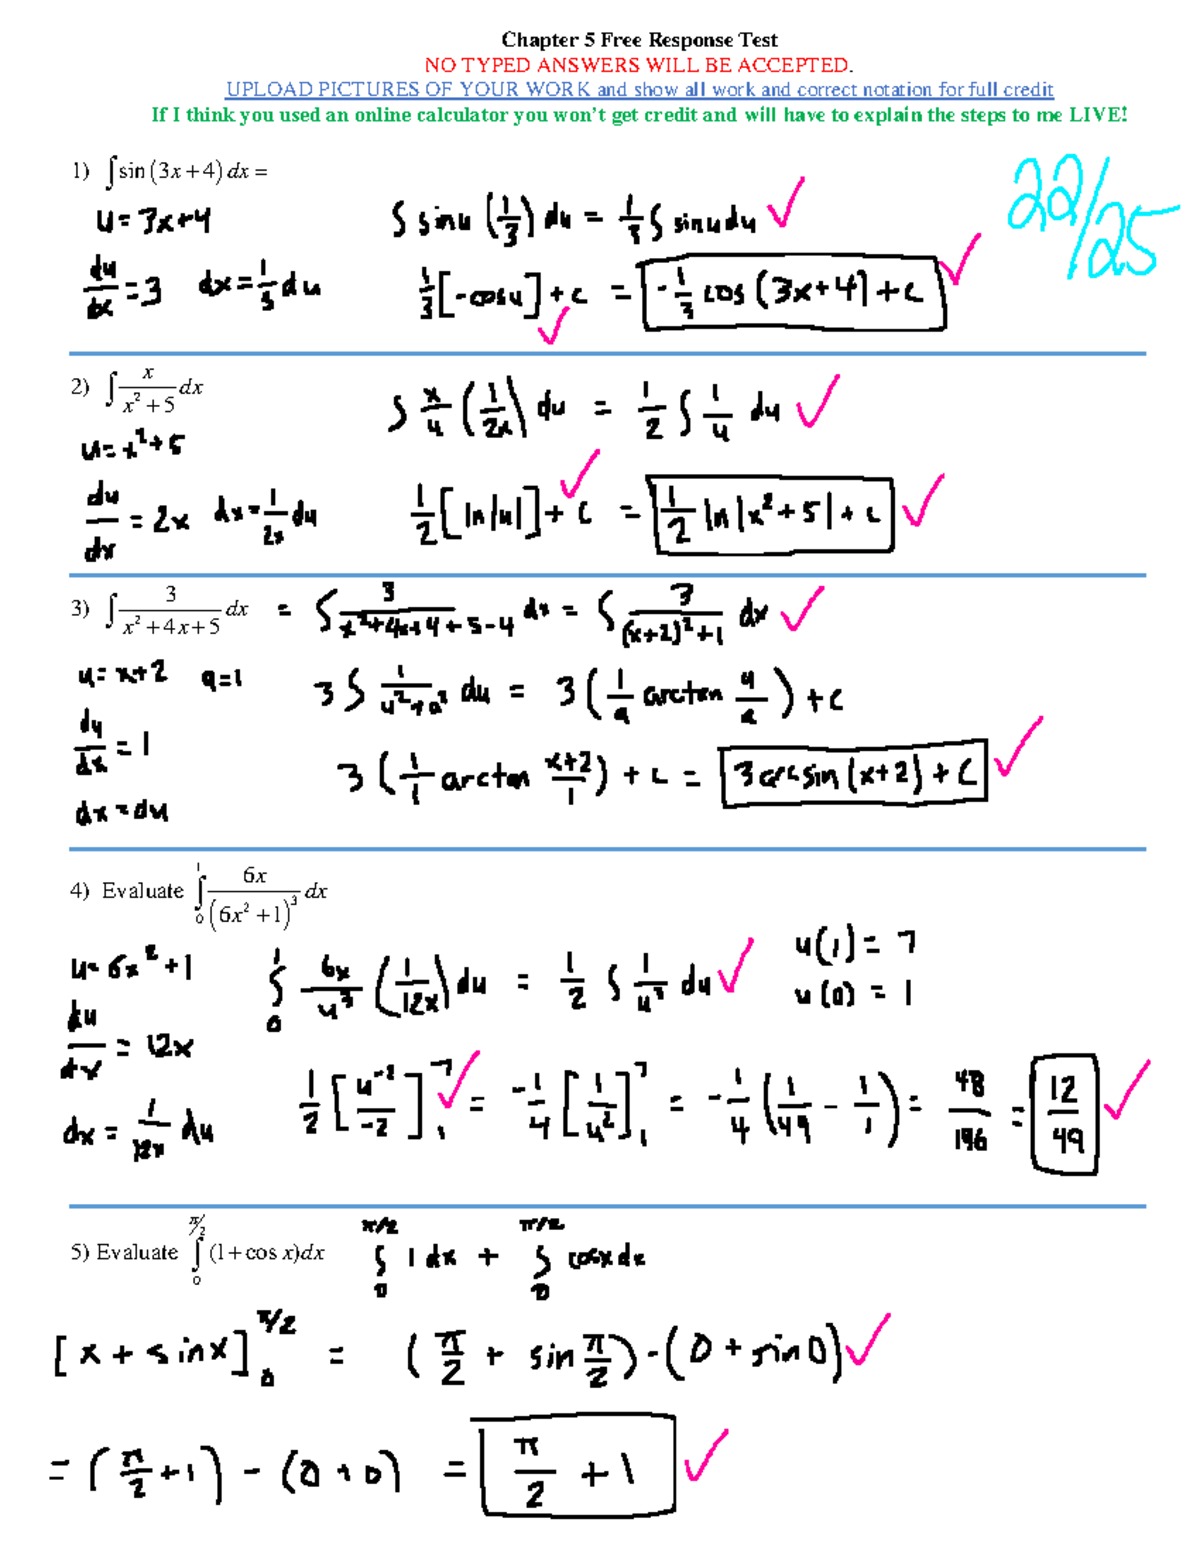 Chapter 5 Free Response Test
NO TYPED ANSWERS WILL BE ACCEPTED.
UPLOAD PICTURES OF YOUR WORK and show all work and correct notation for full credit
If I think you used an online calculator you won't get credit and will have to explain the steps to me LIVE!
22/25
1) ∫ sin (3x + 4) dx =
u = 3x+4
∫ sin u (1/3) du = 1/3 ∫ sin u du
du/dx = 3 dx = 1/3 du
1/3 [-cos u] + c = -1/3 cos (3x+4) + c
2) ∫ x/(x² + 5) dx
∫ x/u (1/2x) du = 1/2 ∫ 1/u du
u = x² + 5
du/dx = 2x dx = 1/2x du
1/2 [ln|u|] + c = 1/2 ln|x² + 5| + c
3) ∫ 3/(x² + 4x + 5) dx = ∫ 3/(x²+4x+4+5-4) dx = ∫ 3/((x+2)²+1) dx
u = x+2 a = 1
3 ∫ 1/(u²+a²) du = 3 (1/a arctan u/a) + c
du/dx = 1
3 (1/1 arctan (x+2)/1) + c = 3 arcsin (x+2) + C
dx = du
4) Evaluate ∫₀¹ 6x/(6x² + 1)³ dx
u = 6x² + 1
∫₀¹ 6x/u³ (1/12x) du = 1/2 ∫ 1/u³ du
u(1) = 7
u(0) = 1
du/dx = 12x
1/2 [u⁻²/-2]₁⁷ = -1/4 [1/u²]₁⁷ = -1/4 (1/49 - 1/1) = 48/196 = 12/49
dx = 1/12x du
5) Evaluate ∫₀^(π/2) (1 + cos x)dx
∫₀^(π/2) 1 dx + ∫₀^(π/2) cos x dx
[x + sin x]₀^(π/2) = (π/2 + sin π/2) - (0 + sin 0)
= (π/2 + 1) - (0 + 0) = π/2 + 1